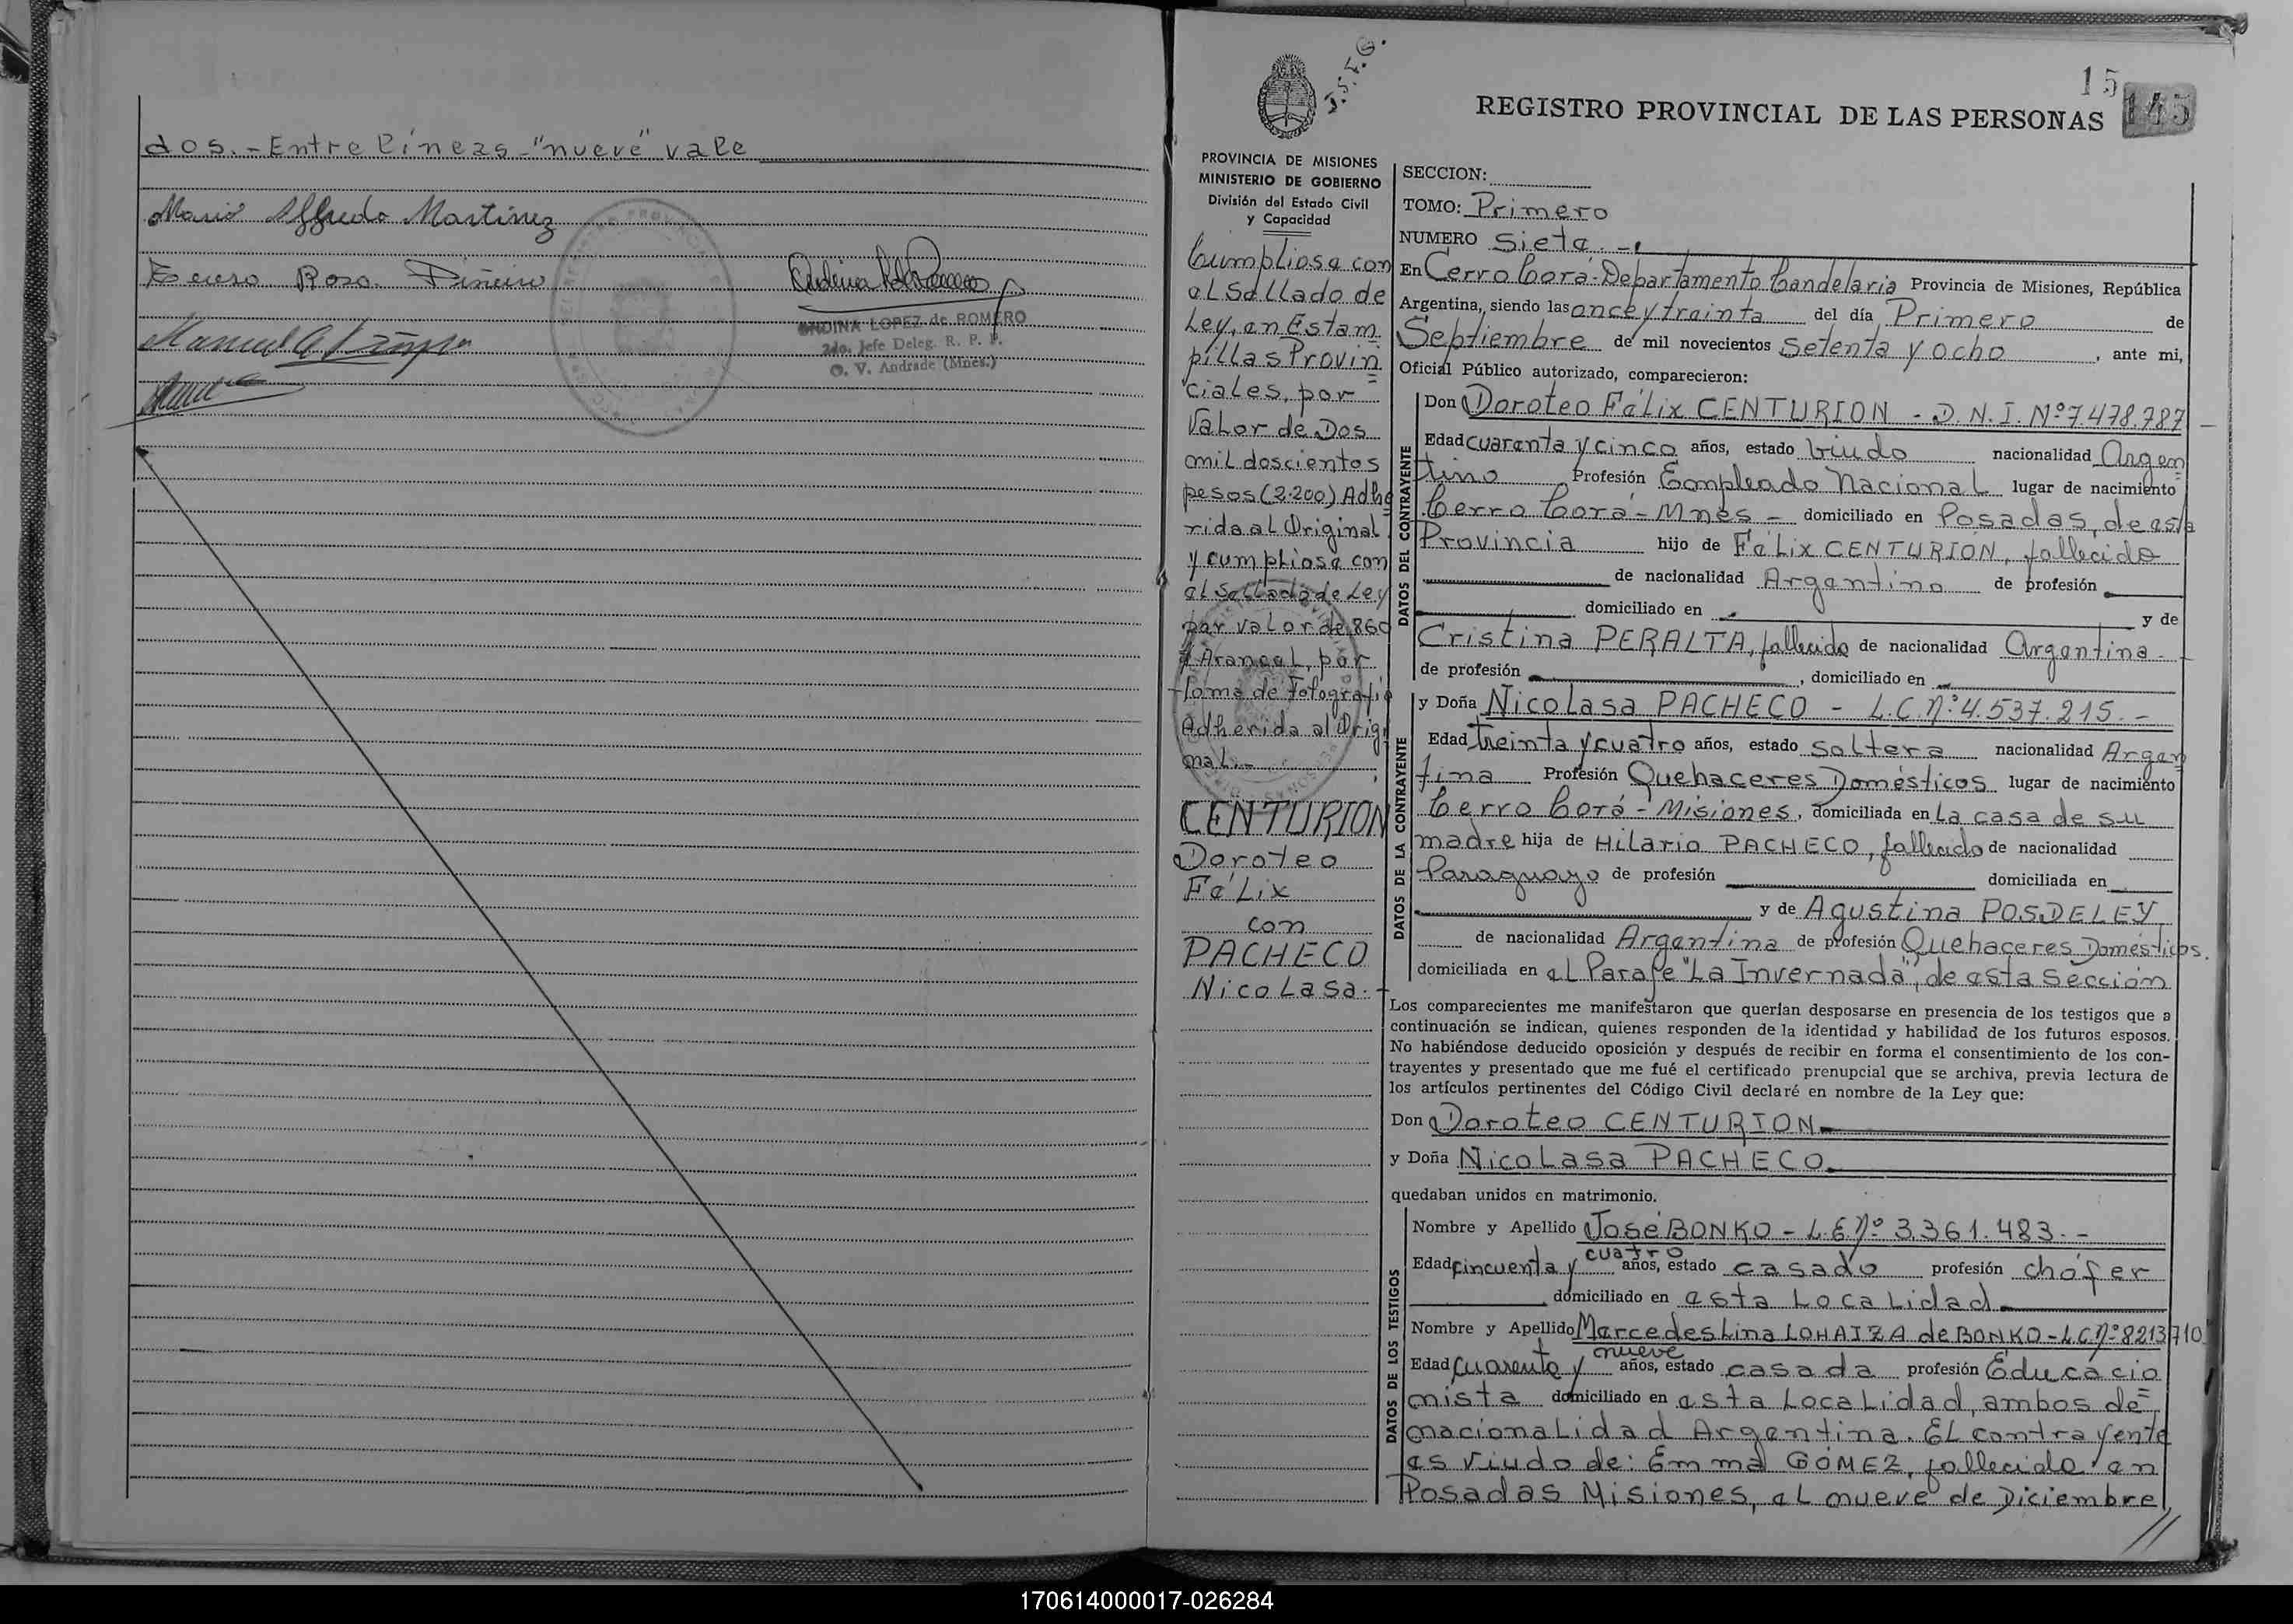 dos.- Entre líneas - "nueve" vale
Mario Alfredo Martinez
Rosa Piñeiro
Manuel
ONDINA LOPEZ de ROMERO
2do. Jefe Deleg. R. P. P.
O. V. Andrade (Mnes.)
J.S.F.G.
15
145
REGISTRO PROVINCIAL DE LAS PERSONAS
PROVINCIA DE MISIONES
MINISTERIO DE GOBIERNO
División del Estado Civil
y Capacidad
Cumpliose con
el Sellado de
Ley, en Estam
pillas Provin
ciales, por
Valor de Dos
mil doscientos
pesos (2.200) Adhe
rida al Original
y cumpliose con
el Sellado de Ley
por valor de 860
$ Arancel, por
toma de Fotografia
Adherida al Origi
nal.-
CENTURION
Doroteo
Félix
con
PACHECO
Nicolasa.-
SECCION:
TOMO: Primero
NUMERO Siete.-
En Cerro Corá - Departamento Candelaria Provincia de Misiones, República
Argentina, siendo las once y treinta del día Primero de
Septiembre de mil novecientos Setenta y ocho, ante mi,
Oficial Público autorizado, comparecieron:
DATOS DEL CONTRAYENTE
Don Doroteo Félix CENTURION - D.N.I. Nº 7.478.787
Edad cuarenta y cinco años, estado Viudo nacionalidad Argen
tino Profesión Empleado Nacional lugar de nacimiento
Cerro Corá - Mnes - domiciliado en Posadas, de esta
Provincia hijo de Félix CENTURION, fallecido
de nacionalidad Argentino de profesión
domiciliado en y de
Cristina PERALTA, fallecida de nacionalidad Argentina -
de profesión , domiciliado en
DATOS DE LA CONTRAYENTE
y Doña Nicolasa PACHECO - L.C. Nº 4.537.215.-
Edad treinta y cuatro años, estado soltera nacionalidad Argen
tina Profesión Quehaceres Domésticos lugar de nacimiento
Cerro Corá - Misiones, domiciliada en La casa de su
madre hija de Hilario PACHECO, fallecido de nacionalidad
Paraguayo de profesión domiciliada en
y de Agustina POSDELEY
de nacionalidad Argentina de profesión Quehaceres Domésticos.
domiciliada en el Paraje "La Invernada", de esta Sección
Los comparecientes me manifestaron que querían desposarse en presencia de los testigos que a
continuación se indican, quienes responden de la identidad y habilidad de los futuros esposos.
No habiéndose deducido oposición y después de recibir en forma el consentimiento de los con-
trayentes y presentado que me fué el certificado prenupcial que se archiva, previa lectura de
los artículos pertinentes del Código Civil declaré en nombre de la Ley que:
Don Doroteo CENTURION
y Doña Nicolasa PACHECO
quedaban unidos en matrimonio.
DATOS DE LOS TESTIGOS
Nombre y Apellido José BONKO - L.E. Nº 3.361.483.-
cuatro
Edad cincuenta y años, estado casado profesión chófer
domiciliado en esta Localidad
Nombre y Apellido Mercedes Lina LOHAIZA de BONKO - L.C. Nº 8213710
nueve
Edad Cuarenta y años, estado casada profesión Educacio
nista domiciliado en esta Localidad, ambos de
nacionalidad Argentina. El contrayente
es viudo de: Emma GOMEZ, fallecida en
Posadas Misiones, el nueve de Diciembre,
//
170614000017-026284